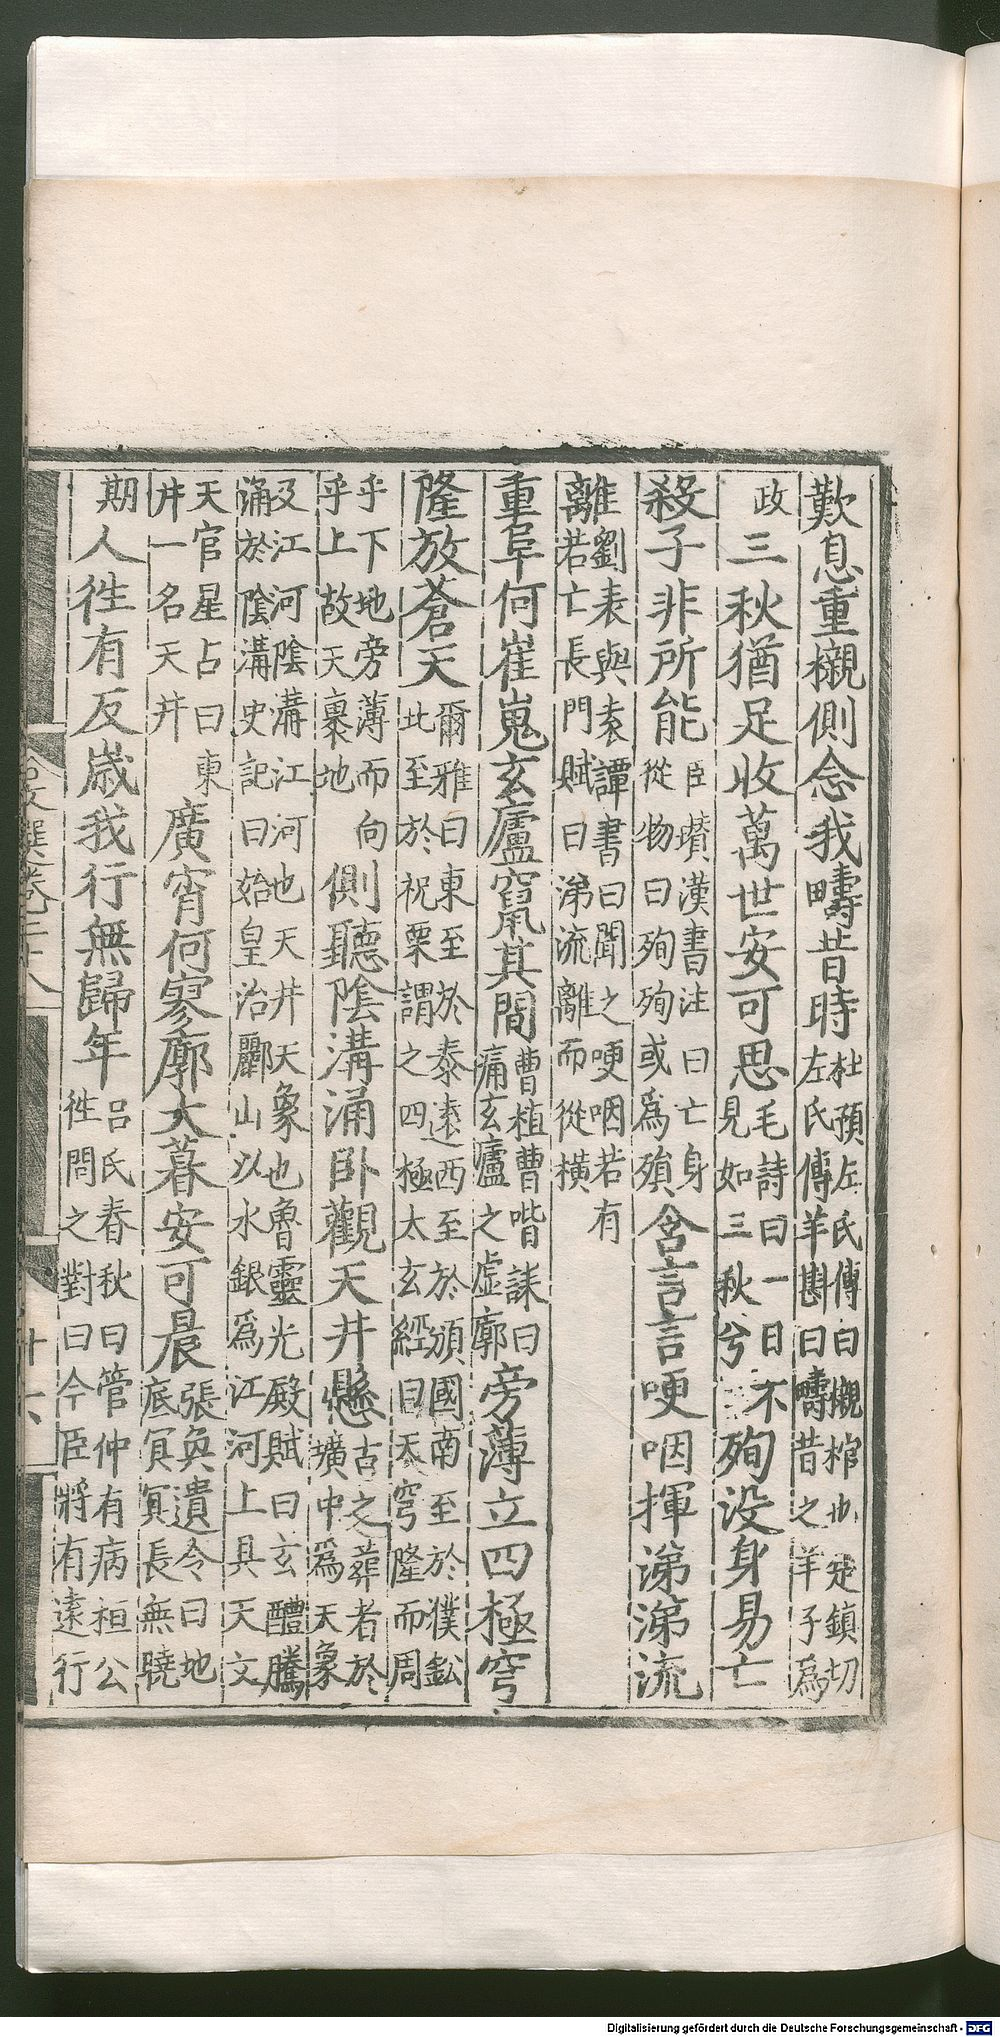 歎息重櫬側念我疇昔時
杜預左氏傳曰櫬棺也楚鎮切
左氏傳羊斟曰疇昔之羊子為
政
三秋猶足收萬世安可思
毛詩曰一日不
見如三秋兮
殉没身易亡
殺子非所能
臣瓚漢書注曰亡身
從物曰殉殉或為殞
含言言哽咽揮涕涕流
離
劉表與袁譚書曰聞之哽咽若有
若亡長門賦曰涕流離而從橫
重阜何崔嵬玄廬竄其間
曹植曹喈誄曰
痛玄廬之虛廓
旁薄立四極穹
隆放蒼天
爾雅曰東至於泰遠西至於頒國南至於濮鈆
北至於祝栗謂之四極太玄經曰天穹隆而周
乎下地旁薄而向
乎上故天裹地
側聽陰溝涌卧觀天井懸
古之葬者於
壙中為天象
及江河陰溝江河也天井天象也魯靈光殿賦曰玄醴騰
涌於陰溝史記曰始皇治酈山以水銀為江河上具天文
天官星占曰東
井一名天井
廣宵何寥廓大暮安可晨
張奐遺令曰地
底冥冥長無曉
期
人往有反歲我行無歸年
呂氏春秋曰管仲有病桓公
往問之對曰今臣將有遠行
文選卷二十八
廿六
Digitalisierung gefördert durch die Deutsche Forschungsgemeinschaft - DFG